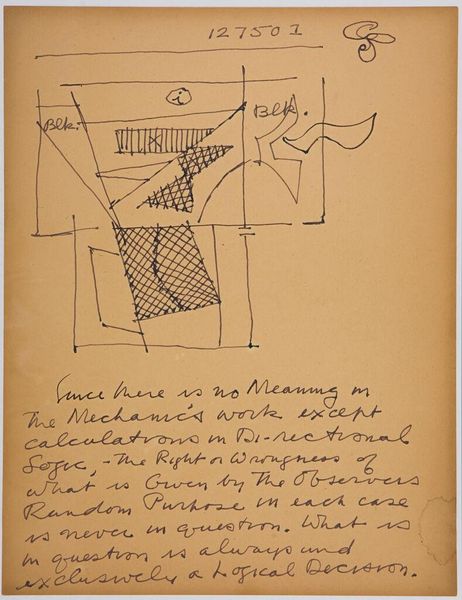 127501
i
Blk.
Blk.
Since there is no Meaning in
The Mechanic's work except
calculations in Di-rectional
Logic, - The Right or Wrongness of
what is Given by The Observers
Random Purpose in each case
is never in question. What is
in question is always and
exclusively a Logical Decision.